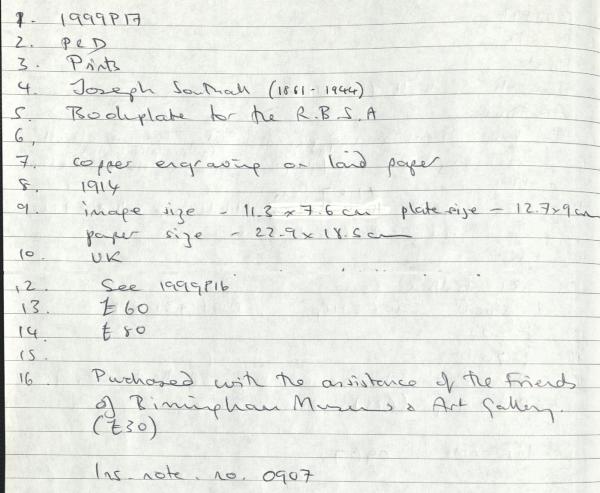 1. 1999P17
2. P&D
3. Prints
4. Joseph Southall (1861 - 1944)
5. Bookplate for the R.B.S.A
6.
7. copper engraving on laid paper
8. 1914
9. image size - 11.3 x 7.6 cm plate size - 12.7x9 cm
paper size - 22.9 x 18.6 cm
10. UK
12. See 1999P16
13. £60
14. £80
15.
16 Purchased with the assistance of the Friends
of Birmingham Museums & Art Gallery.
(£30)
Ins. note. no. 0907